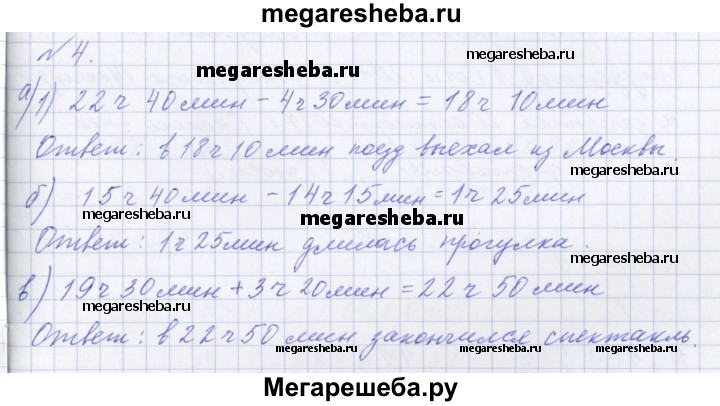 megaresheba.ru
№ 4.
megaresheba.ru
megaresheba.ru
а) 1) 22 ч 40 мин - 4 ч 30 мин = 18 ч 10 мин
Ответ: в 18 ч 10 мин поезд выехал из Москвы.
megaresheba.ru
б) 15 ч 40 мин - 14 ч 15 мин = 1 ч 25 мин
megaresheba.ru
megaresheba.ru
Ответ: 1 ч 25 мин длилась прогулка.
megaresheba.ru
в) 19 ч 30 мин + 3 ч 20 мин = 22 ч 50 мин
megaresheba.ru
Ответ: в 22 ч 50 мин закончился спектакль.
megaresheba.ru
megaresheba.ru
Мегарешеба.ру